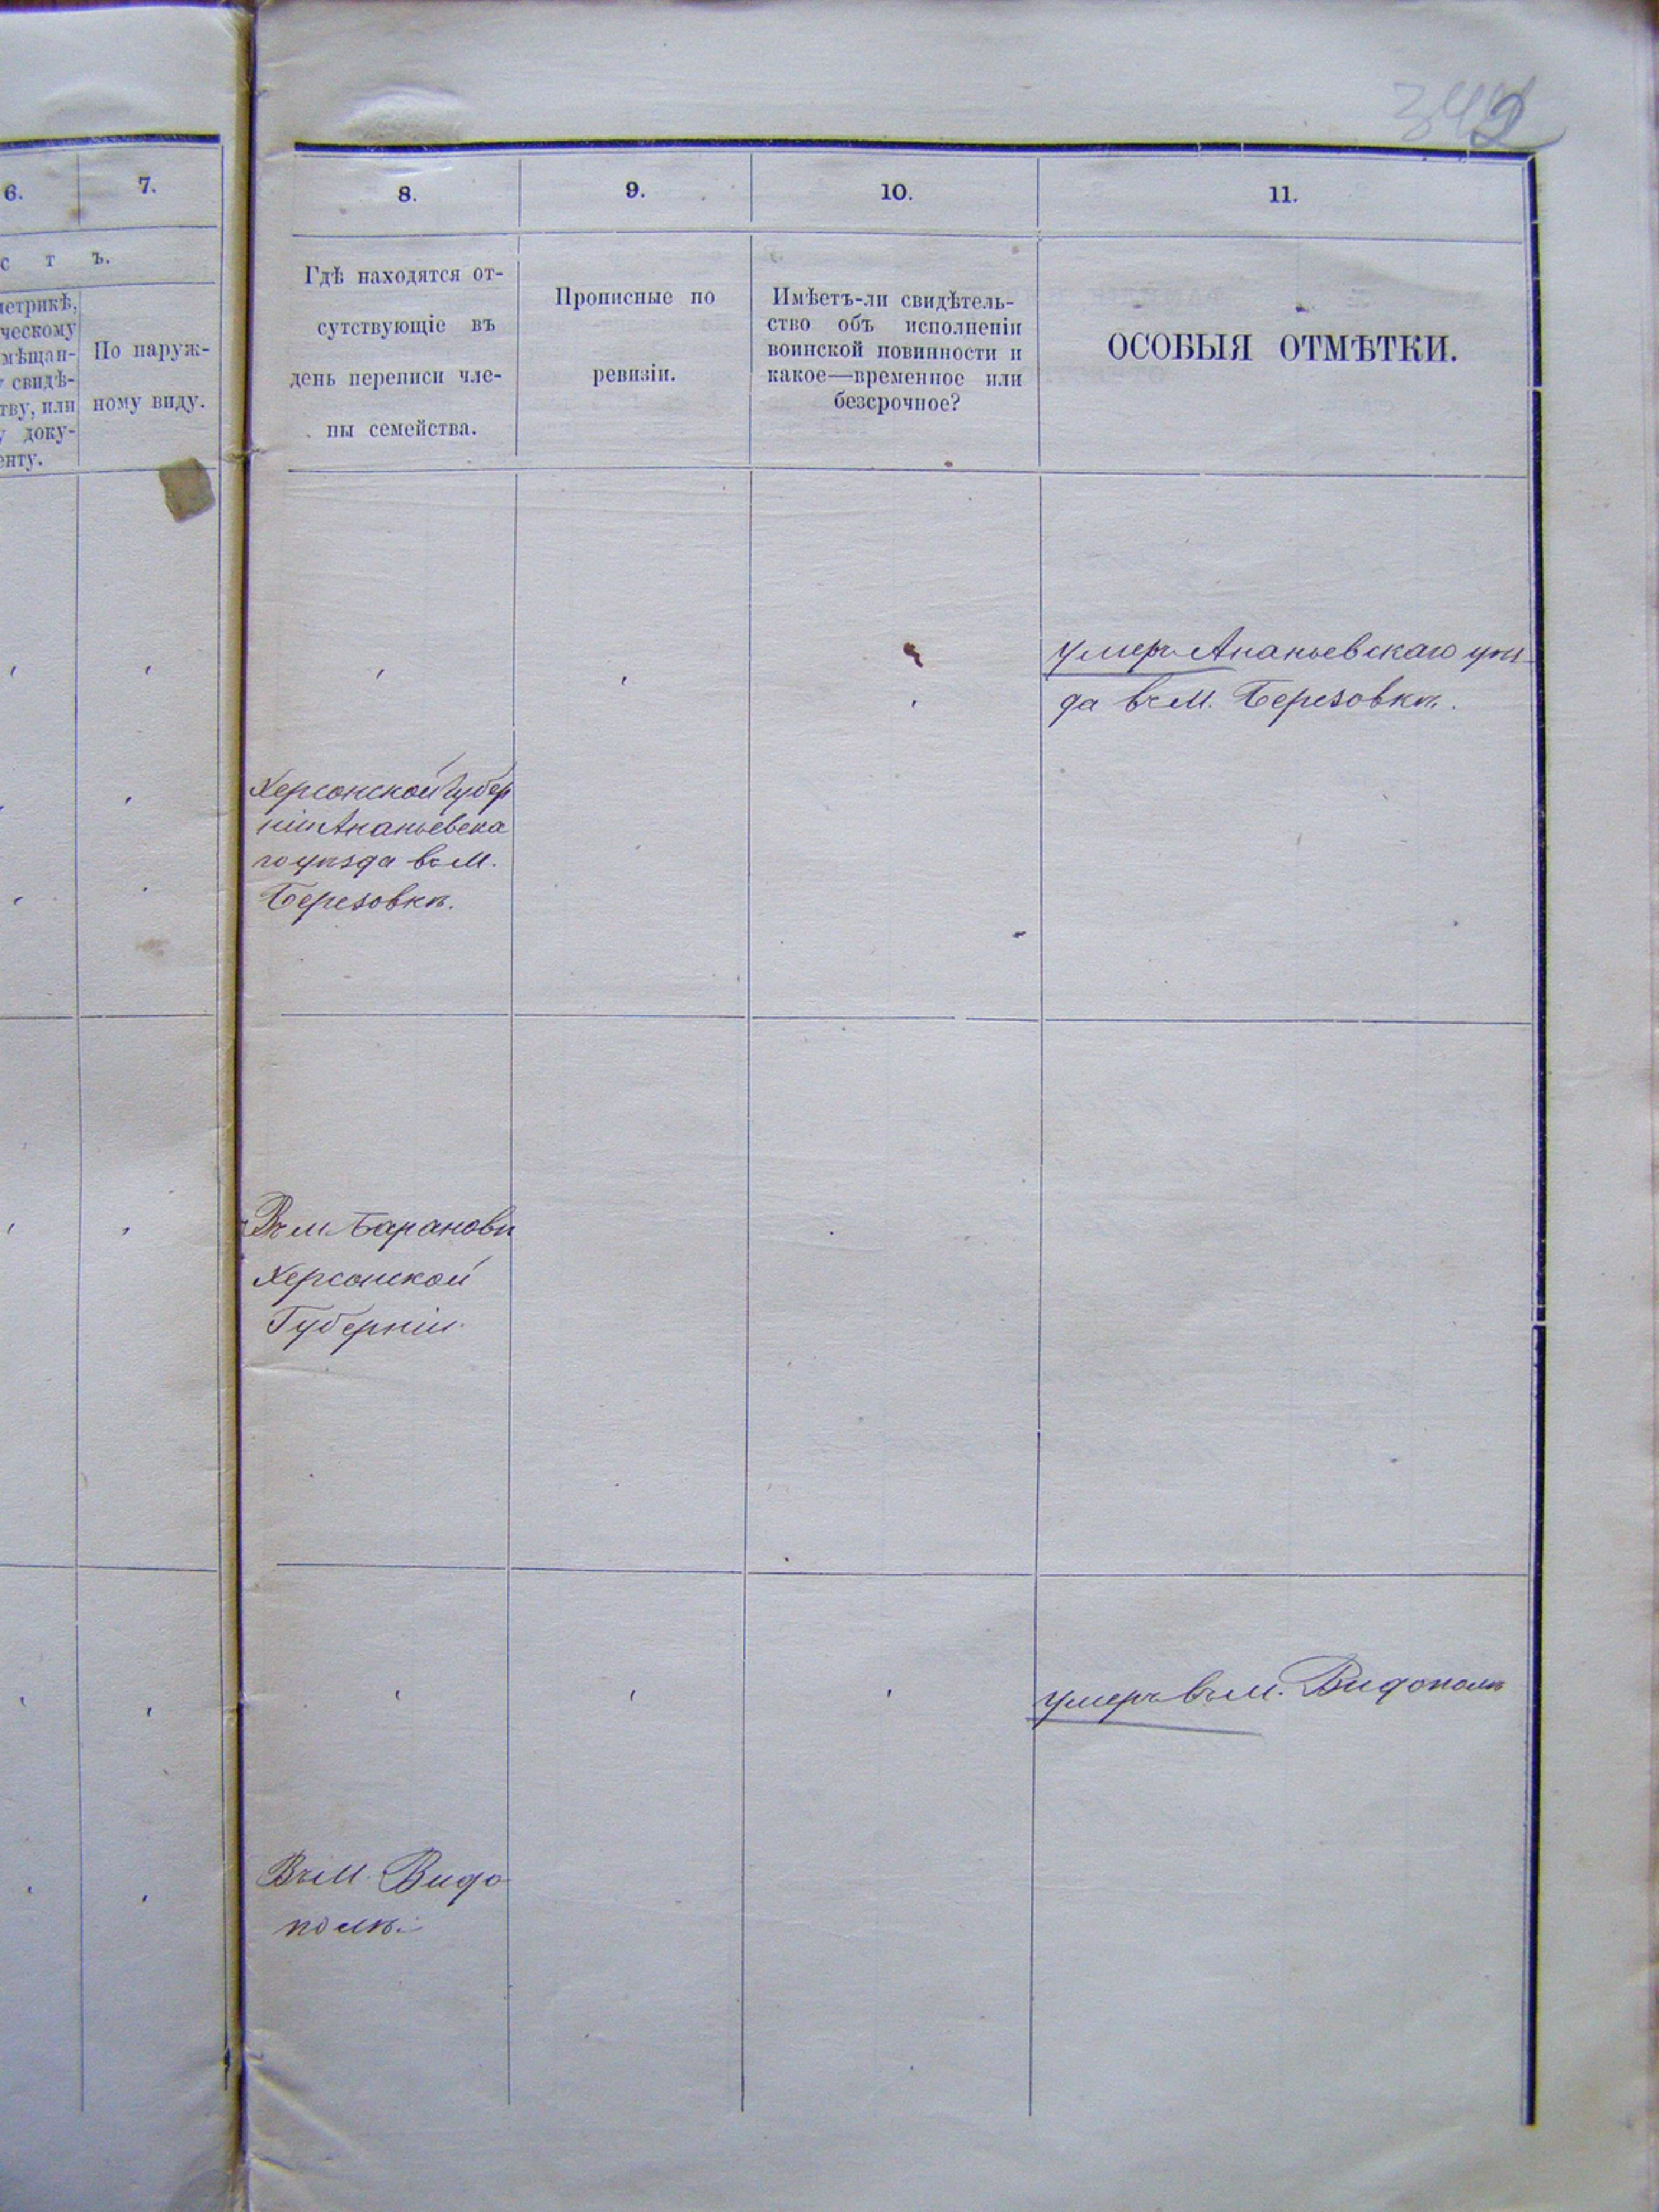 342
6.
7.
8.
9.
10.
11.
с т ъ.
метрикѣ,
ческому
мѣщан-
свидѣ-
тву, или
доку-
енту.
По наруж-
ному виду.
Гдѣ находятся от-
сутствующіе въ
день переписи чле-
ны семейства.
Прописные по
ревизіи.
Имѣетъ-ли свидѣтель-
ство объ исполненіи
воинской повинности и
какое—временное или
безсрочное?
ОСОБЫЯ ОТМѢТКИ.
умеръ Ананьевскаго уѣз
да въ М. Березовкѣ.
Херсонской Губер
ніи Ананьевска
го уѣзда въ М.
Березовкѣ.
Въ м Барановѣ
Херсонской
Губерніи
умеръ въ м. Видополѣ
Въ М. Видо
полѣ.